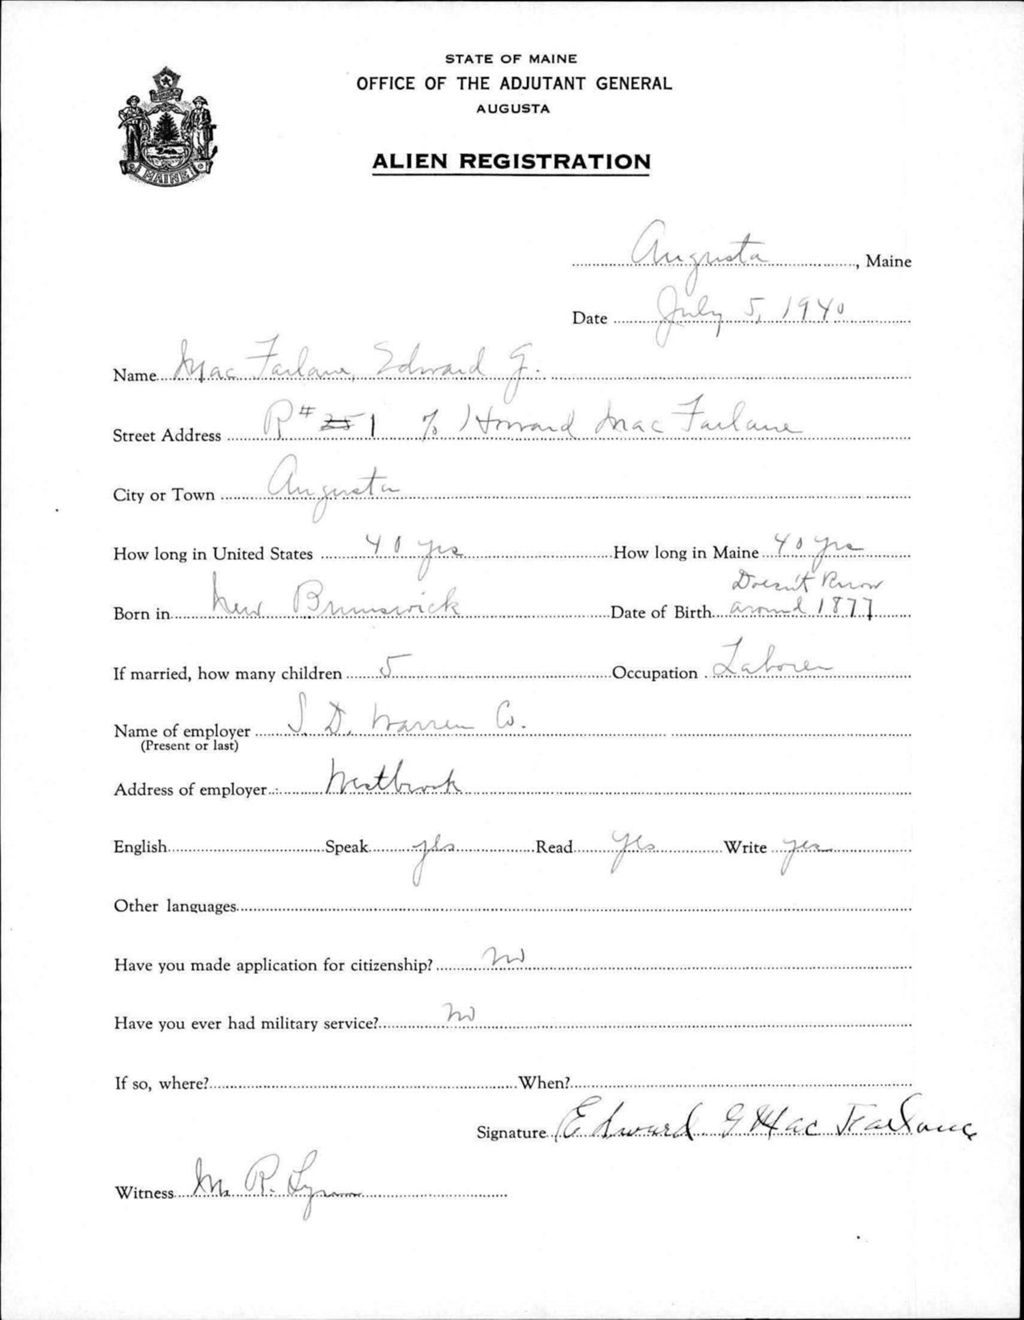 STATE OF MAINE
OFFICE OF THE ADJUTANT GENERAL
AUGUSTA
ALIEN REGISTRATION
MAINE
Augusta, Maine
Date July 5, 1940
Name Mac Farlane, Edward G.
Street Address R # 1 % Howard Mac Farlane
City or Town Augusta
How long in United States 40 yrs How long in Maine 40 yrs
Doesn't Know
Born in New Brunswick Date of Birth around 1877
If married, how many children 5 Occupation Laborer
Name of employer S. D. Warren Co.
(Present or last)
Address of employer Westbrook
English Speak yes Read Yes Write yes
Other languages
Have you made application for citizenship? No
Have you ever had military service? No
If so, where? When?
Signature Edward G Mac Farlane
Witness M. R.